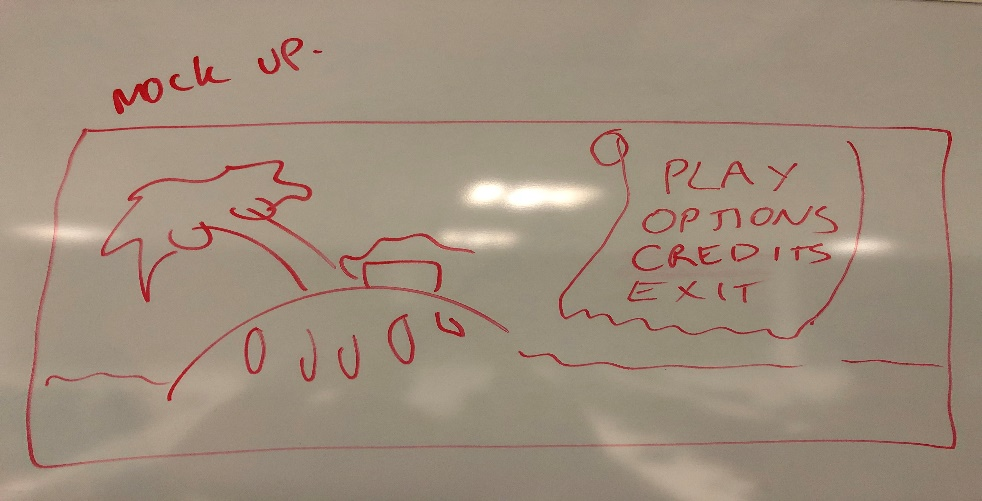 MOCK UP.
PLAY
OPTIONS
CREDITS
EXIT